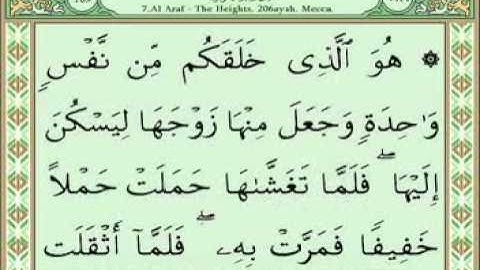 7.Al Araf - The Heights. 206ayah. Mecca.
۞ هُوَ ٱلَّذِى خَلَقَكُم مِّن نَّفْسٍ
وَٰحِدَةٍ وَجَعَلَ مِنْهَا زَوْجَهَا لِيَسْكُنَ
إِلَيْهَا ۖ فَلَمَّا تَغَشَّىٰهَا حَمَلَتْ حَمْلاً
خَفِيفًا فَمَرَّتْ بِهِۦ ۖ فَلَمَّآ أَثْقَلَت